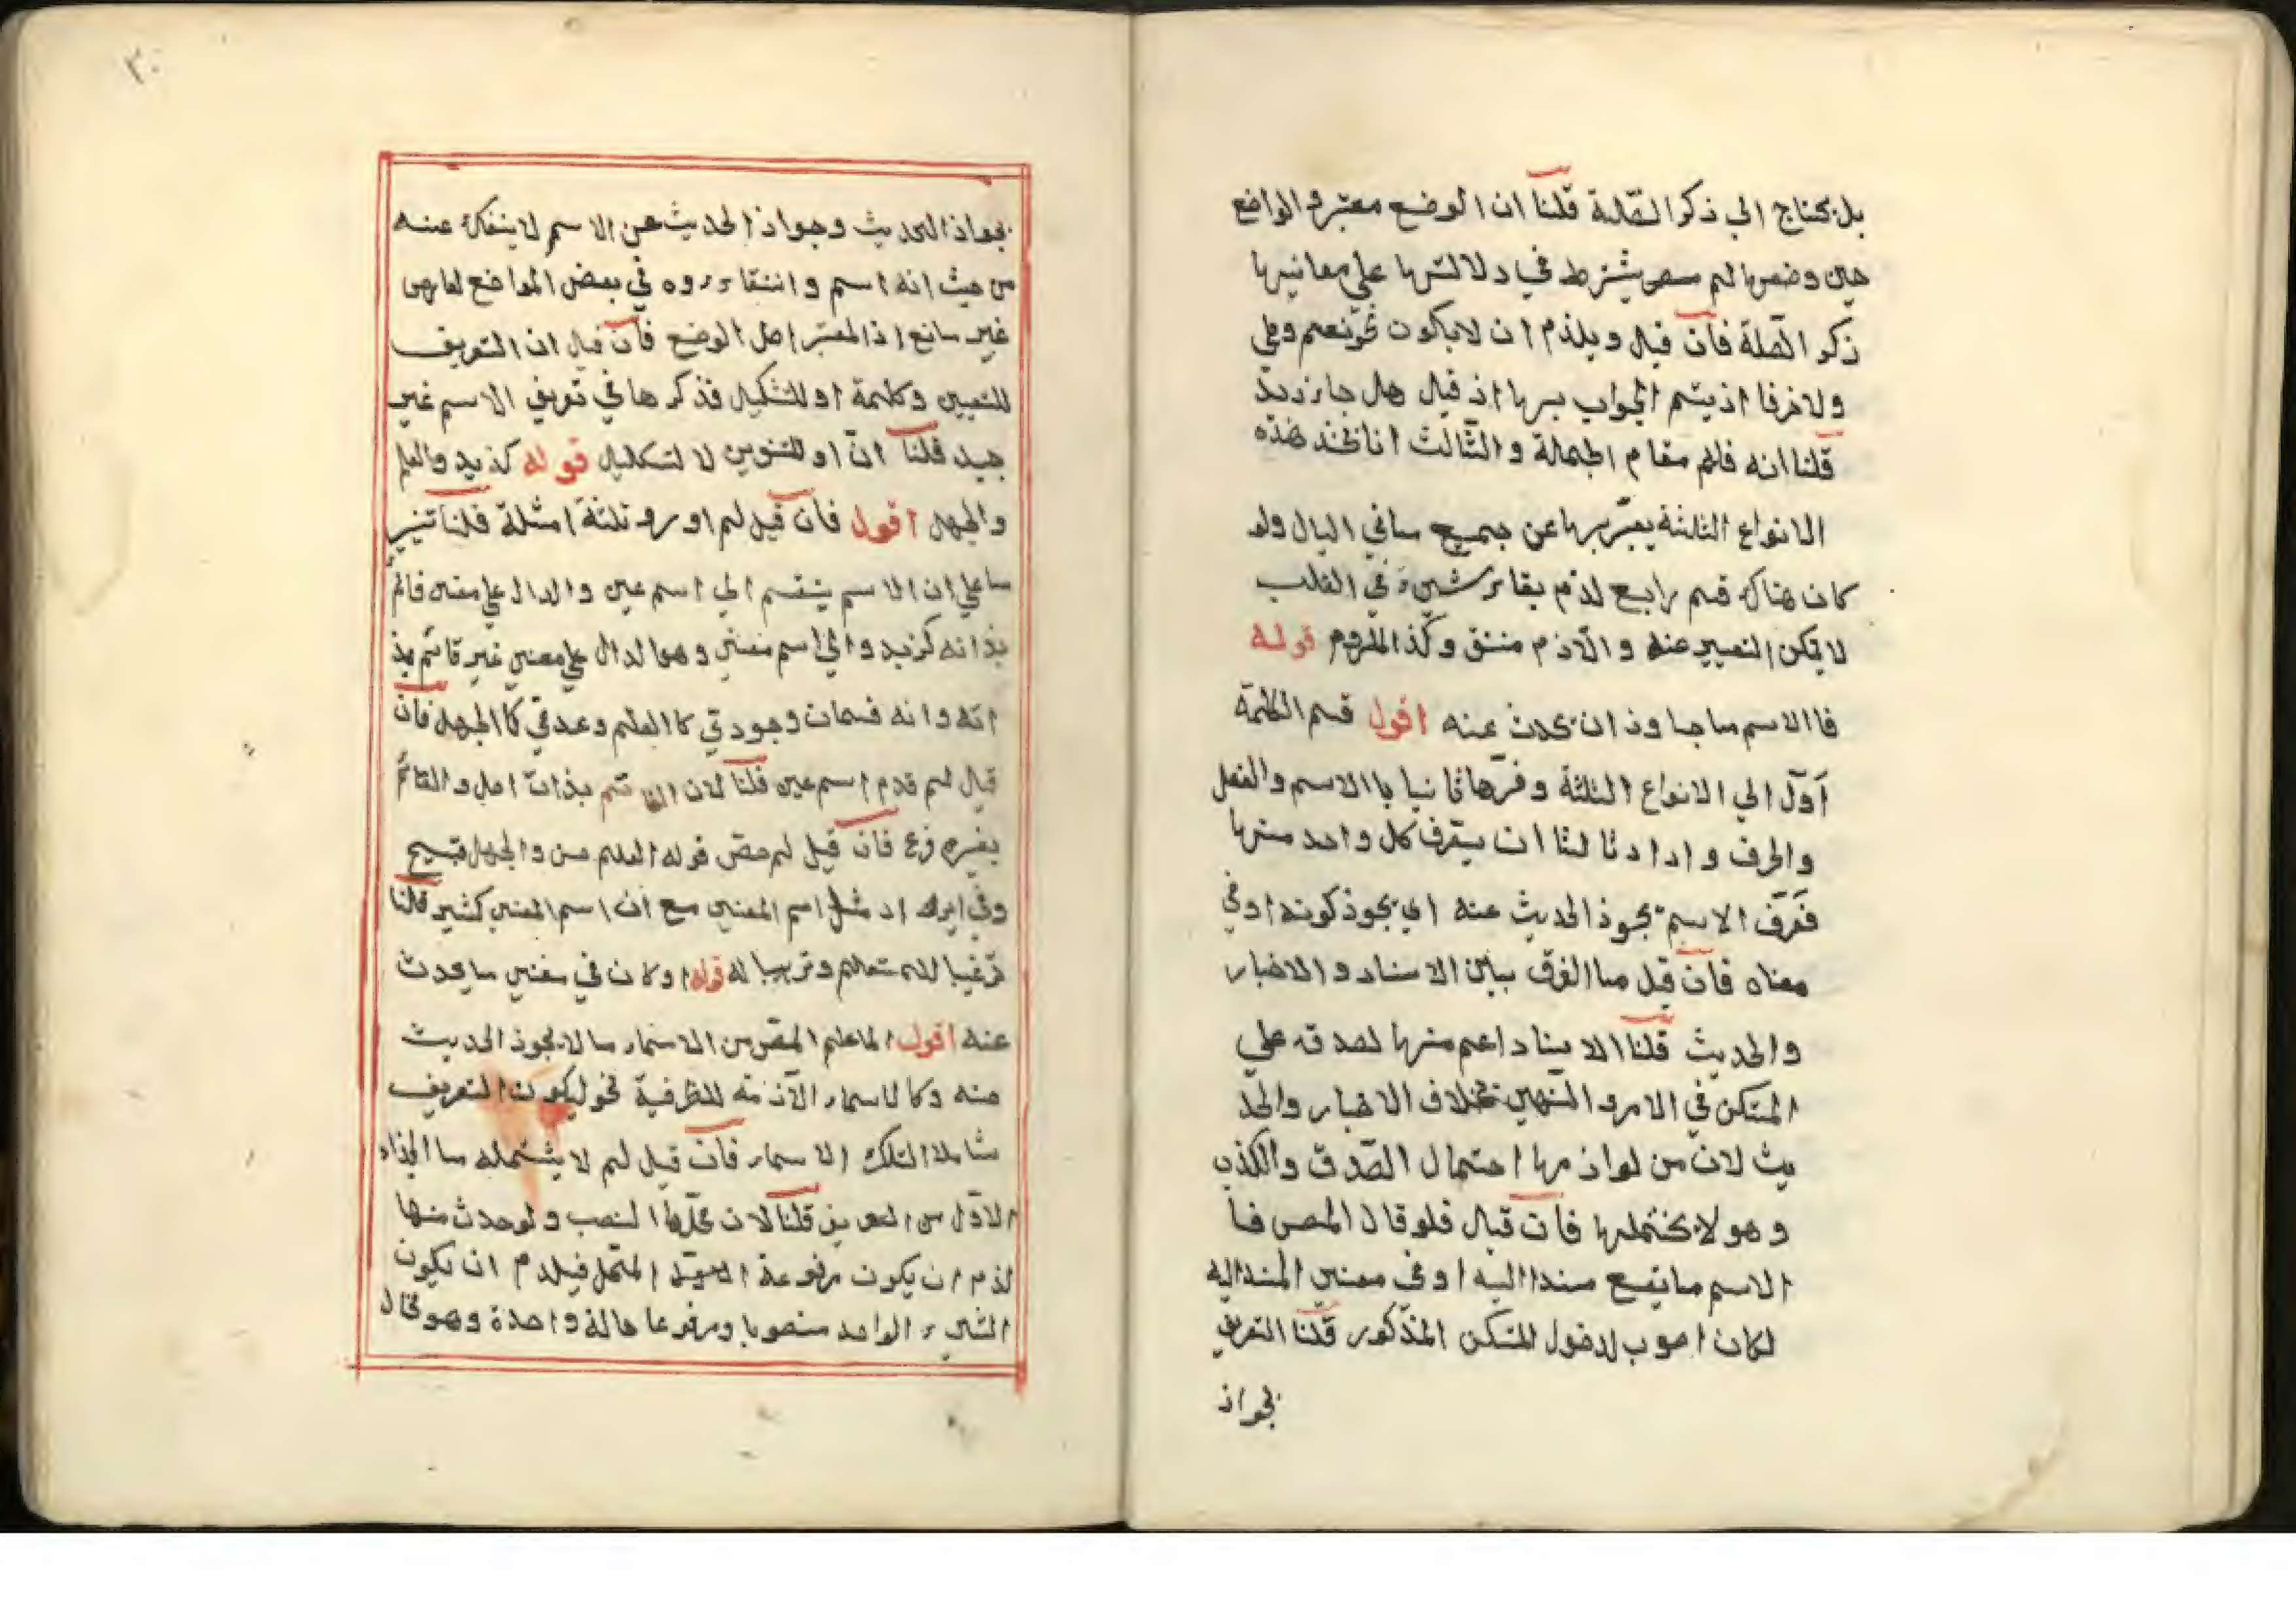 بل يحتاج الي ذكر الصّلة قلنا ان الوضع معتبر و الواضع
حين وضعها لم يشترط في دلالتها علي معانيها
ذكر الصّلة فان قيل ويلزم ان لا يكون نحو نعم وبلي
ولا حرفا اذ يتم الجواب بها اذ قيل هل جاء زيد
قلنا انه قائم مقام الجملة و الثالث انا نجد هذه
الانواع الثلثة يعبّر بها عن جميع ما في البال ولو
كان هناك قسم رابع لزم بقاء شيء في القلب
لا يمكن التعبير عنه و الّازم منتف وكذا الملزوم قوله
فا الاسم ما جاوز ان يحدث عنه اقول قسم الكلمة
اوّل الي الانواع الثلثة وفرّها ثانيا با الاسم والفعل
والحرف و ارادنا لنا ان يعرف كل واحد منها
فعرّف الاسم بجوز الحديث عنه اي يجوز كونه او في
معناه فان قيل ما الفرق بين الاسناد و الاخبار
والحديث قلنا الاسناد اعم منها لصدقه علي
المتكن في الامر و النهي بخلاف الاخبار والحد
يث لان من لوازمها احتمال الصّدق والكذب
وهو لا يحتملها فان قيل فلو قال المص فا
الاسم ما يقع مسندا اليه او في معني المسند اليه
لكان اصوب لدخول المتكن المذكور قلنا التعريف
بجواز
٢٠
بجواز الحديث وجواز الحديث عن الاسم لا ينفك عنه
من حيث انه اسم و انتفاءه في بعض المواضع لعارض
غير مانع اذ المعتبر اصل الوضع فان قيل ان التعريف
للتعيين وكلمة او للتشكيك فذكرها في تعريف الاسم غير
جيد قلنا انّ او للتنويع لا لتشكيك قوله كزيد والعلم
والجهل اقول فان قيل لم اورد ثلثة امثلة قلنا تنبيها
علي ان الاسم ينقسم الي اسم عين و الدال علي معني قائم
بذاته كزيد و الي اسم معني وهو الدال علي معني غير قائم بذ
اته وانه قسمان وجودي كا العلم وعدمي كا الجهل فان
قيل لم قدم اسم عين قلنا لان القائم بذات اصل و القائم
بغيره فرع فان قيل لم خصّ قوله العلم حسن والجهل قبيح
وفي ايراد مثل اسم المعني مع ان اسم المعني كثير قلنا
ترغيبا للمتعلم وترهيبا له قوله او كان في معني ما يحدث
عنه اقول لما علم المص من الاسماء ما لا يجوز الحديث
عنه وكا لاسماء الّازمة للظرفية نحو ليكون التعريف
شاملا لتلك الاسماء فان قيل لم لا يشتمله ما الجزاء
الاوّل من التعريف قلنا لان محلّها النصب و لو حدث منها
لزم ان يكون مرفوعة المحلّ فيلزم ان يكون
الشيء الواحد منصوبا ومرفوعا حالة واحدة وهو محال